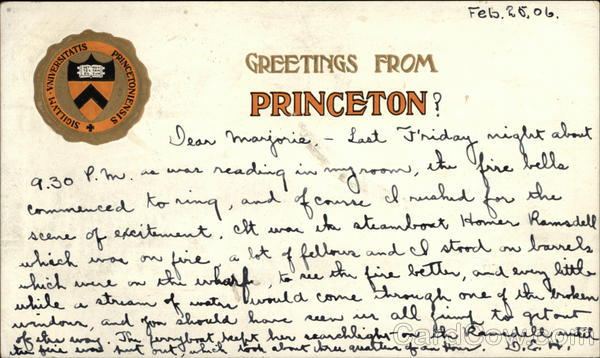 Feb. 25, 06.
SIGILLVM · VNIVERSITATIS PRINCETONIENSIS
GREETINGS FROM
PRINCETON?
Dear Marjorie, - Last Friday night about
9.30 P.M. as was reading in my room, the fire bells
commenced to ring, and of course I rushed for the
scene of excitement. It was the steamboat Homer Ramsdell
which was on fire. a lot of fellows and I stood on barrels
which were on the wharfe, to see the fire better, and every little
while a stream of water would come through one of the broken
windows, and you should have seen us all jump to get out
of the way. The ferryboat kept her searchlight on the Ramsdell until
the fire was put out, which took about three quarters of an hour.
CardCow.com